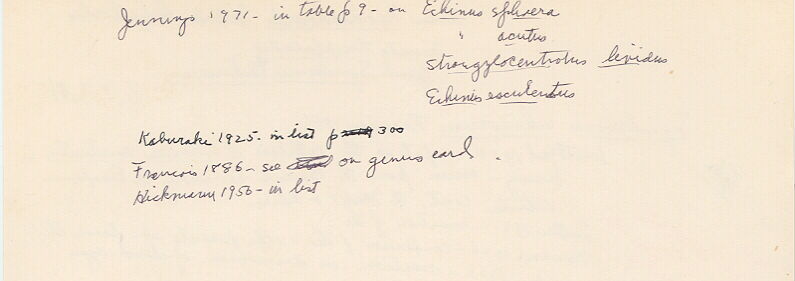 Jennings 1971 - in table p 9 - on Echinus sphaera
" acutus
Strongylocentrotus lividus
Echinus esculentus
Kaburaki 1925 - in list p 300
Francois 1886 - see on genus card.
Hickman 1956 - in list